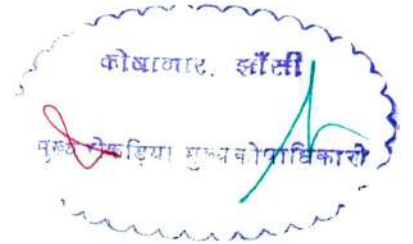 कोषागार, झाँसी
मुख्य रोकड़िया मुख्य कोषाधिकारी